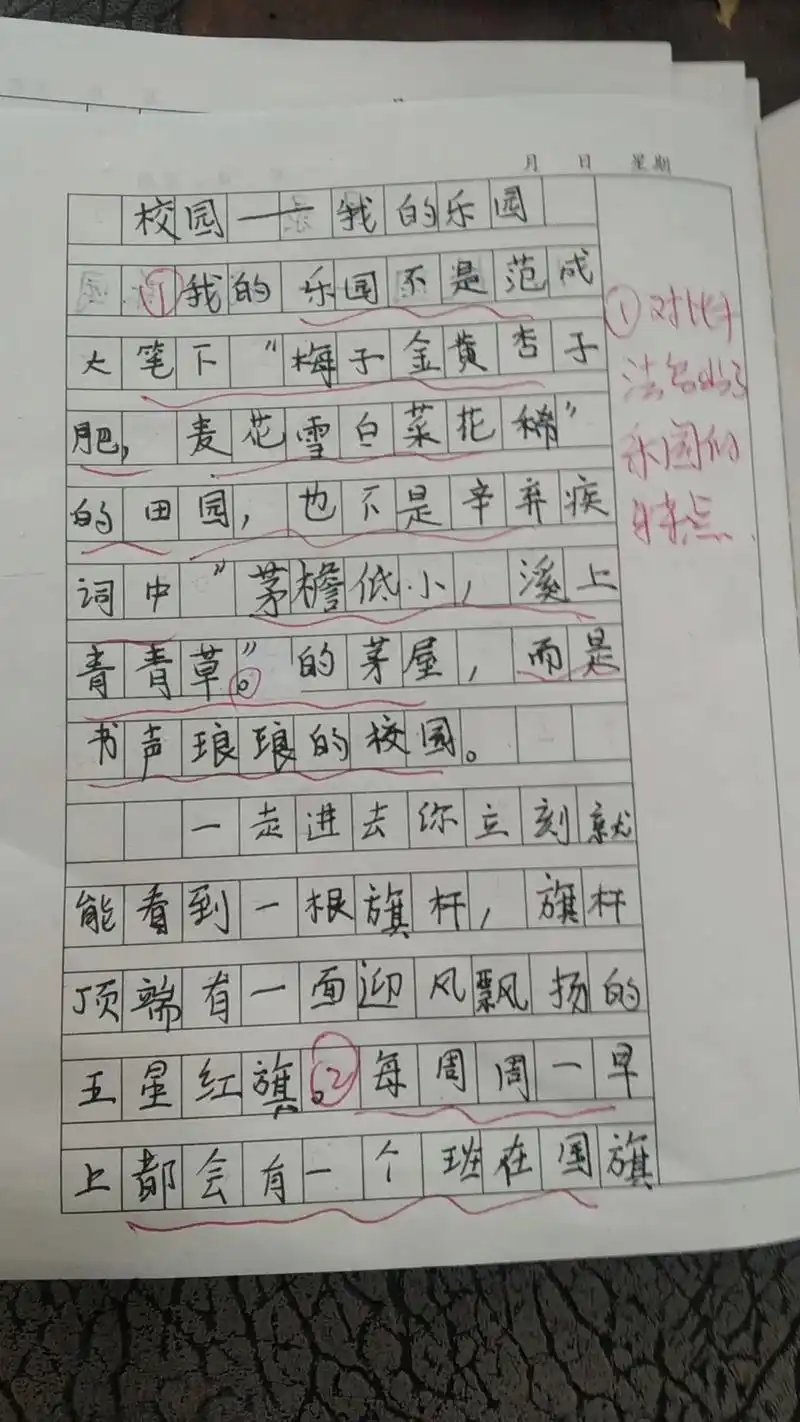 月 日 星期
校园——我的乐园
①我的乐园不是范成
大笔下“梅子金黄杏子
肥，麦花雪白菜花稀”
的田园，也不是辛弃疾
词中“茅檐低小，溪上
青青草。”的茅屋，而是
书声琅琅的校园。
一走进去你立刻就
能看到一根旗杆，旗杆
顶端有一面迎风飘扬的
五星红旗。②每周周一早
上都会有一个班在国旗
①对比手
法
乐园的
特点.